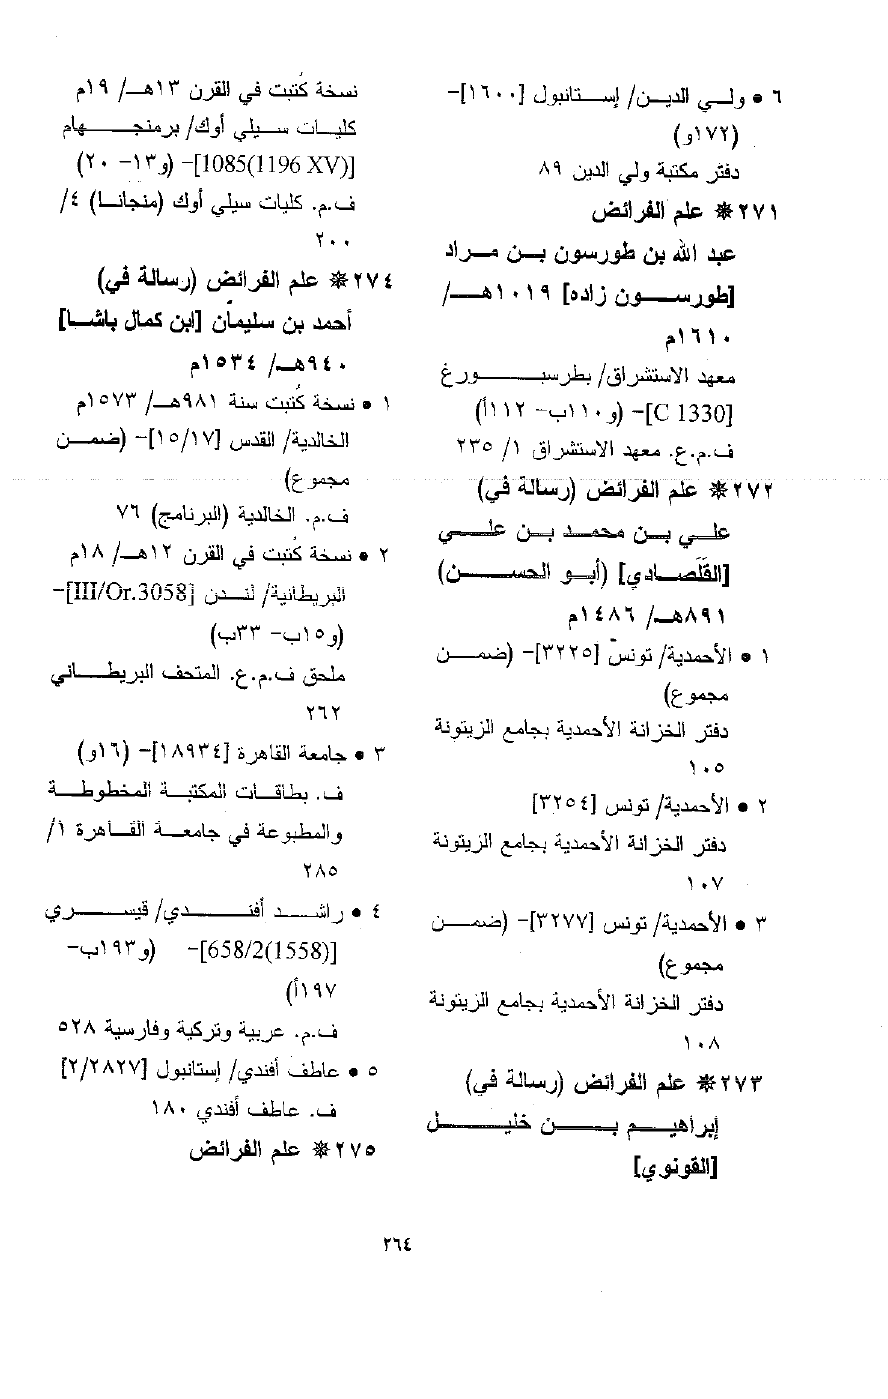 ٦ • ولي الدين/ إستانبول [١٦٠٠]-
(١٧٢و)
دفتر مكتبة ولي الدين ٨٩
٢٧١ ❋ علم الفرائض
عبد الله بن طورسون بن مراد
[طورسون زاده] ١٠١٩هـ/
١٦١٠م
معهد الاستشراق/ بطرسبورغ
[C 1330]- (و١١٠ب- ١١٢أ)
ف.م.ع. معهد الاستشراق ١/ ٢٣٥
٢٧٢ ❋ علم الفرائض (رسالة في)
علي بن محمد بن علي
[القَلَصادي] (أبو الحسن)
٨٩١هـ/ ١٤٨٦م
١ • الأحمدية/ تونس [٣٢٢٥]- (ضمن
مجموع)
دفتر الخزانة الأحمدية بجامع الزيتونة
١٠٥
٢ • الأحمدية/ تونس [٣٢٥٤]
دفتر الخزانة الأحمدية بجامع الزيتونة
١٠٧
٣ • الأحمدية/ تونس [٣٢٧٧]- (ضمن
مجموع)
دفتر الخزانة الأحمدية بجامع الزيتونة
١٠٨
٢٧٣ ❋ علم الفرائض (رسالة في)
إبراهيم بن خليل
[القونوي]
نسخة كُتبت في القرن ١٣هـ/ ١٩م
كليات سيلي أوك/ برمنجهام
[1085(1196 XV)]- (و١٣- ٢٠)
ف.م. كليات سيلي أوك (منجانا) ٤/
٢٠٠
٢٧٤ ❋ علم الفرائض (رسالة في)
أحمد بن سليمان [ابن كمال باشا]
٩٤٠هـ/ ١٥٣٤م
١ • نسخة كُتبت سنة ٩٨١هـ/ ١٥٧٣م
الخالدية/ القدس [١٥/١٧]- (ضمن
مجموع)
ف.م. الخالدية (البرنامج) ٧٦
٢ • نسخة كُتبت في القرن ١٢هـ/ ١٨م
البريطانية/ لندن [III/Or.3058]-
(و١٥ب- ٣٣ب)
ملحق ف.م.ع. المتحف البريطاني
٢٦٢
٣ • جامعة القاهرة [١٨٩٣٤]- (١٦و)
ف. بطاقات المكتبة المخطوطة
والمطبوعة في جامعة القاهرة ١/
٢٨٥
٤ • راشد أفندي/ قيسري
[658/2(1558)]- (و١٩٣ب-
١٩٧أ)
ف.م. عربية وتركية وفارسية ٥٢٨
٥ • عاطف أفندي/ إستانبول [٢/٢٨٢٧]
ف. عاطف أفندي ١٨٠
٢٧٥ ❋ علم الفرائض
٢٦٤